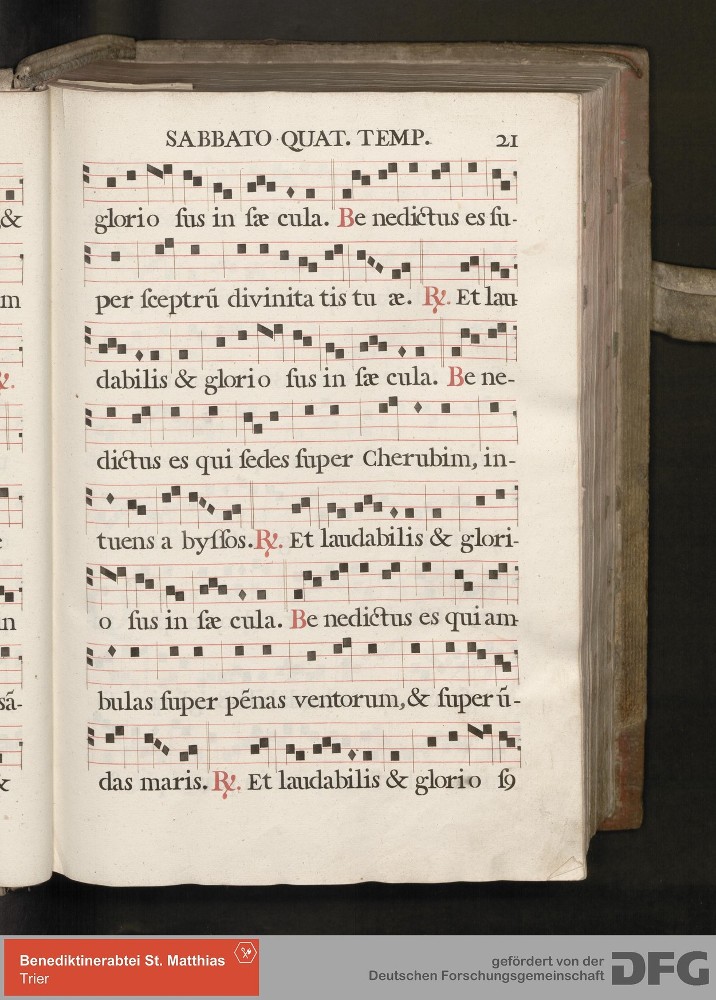 SABBATO QUAT. TEMP. 21
&
glorio ſus in ſæ cula. Be nedictus es ſu-
m
per ſceptrũ divinita tis tu æ. ℟. Et lau
dabilis & glorio ſus in ſæ cula. Be ne-
℟.
dictus es qui ſedes ſuper Cherubim, in-
tuens a byſſos. ℟. Et laudabilis & glori-
o ſus in ſæ cula. Be nedictus es qui am
in
bulas ſuper pẽnas ventorum, & ſuper ũ-
sã-
das maris. ℟. Et laudabilis & glorio ſ9
&
Benediktinerabtei St. Matthias
Trier
gefördert von der
Deutschen Forschungsgemeinschaft
DFG